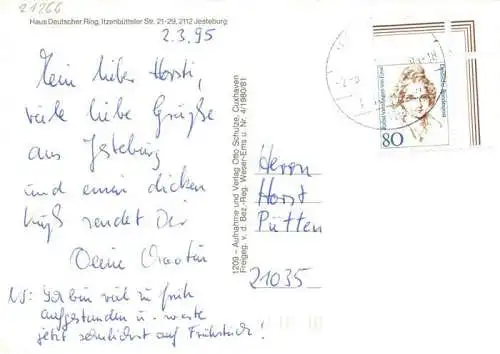 21266
Haus Deutscher Ring, Itzenbütteler Str. 21-29, 2112 Jesteburg
2.3.95
Mein lieber Horsti,
viele liebe Grüße
aus Jesteburg
und einen dicken
Kuß sendet Dir
Deine
NS: Ich bin viel zu früh
aufgestanden u. warte
jetzt sehnlichst auf Frühstück!
1209 – Aufnahme und Verlag Otto Schulze, Cuxhaven
Freigeg. v. d. Bez.-Reg. Weser-Ems u. Nr. 4/1980/81
Deutsche Bundespost
80
Herrn
Horst
Pütten
21035